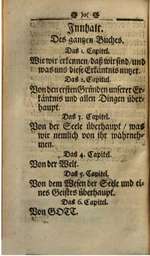 Innhalt.
Des gantzen Buches.
Das 1. Capitel.
Wie wir erkennen, daß wir sind, und
was uns diese Erkäntnis nutzet.
Das 2. Capitel.
Von den ersten Gründen unserer Er-
käntnis und allen Dingen über-
haupt.
Das 3. Capitel.
Von der Seele überhaupt, was
wir nemlich von ihr wahrneh-
men.
Das 4. Capitel.
Von der Welt.
Das 5. Capitel.
Von dem Wesen der Seele und ei-
nes Geistes überhaupt.
Das 6. Capitel.
Von GOTT.